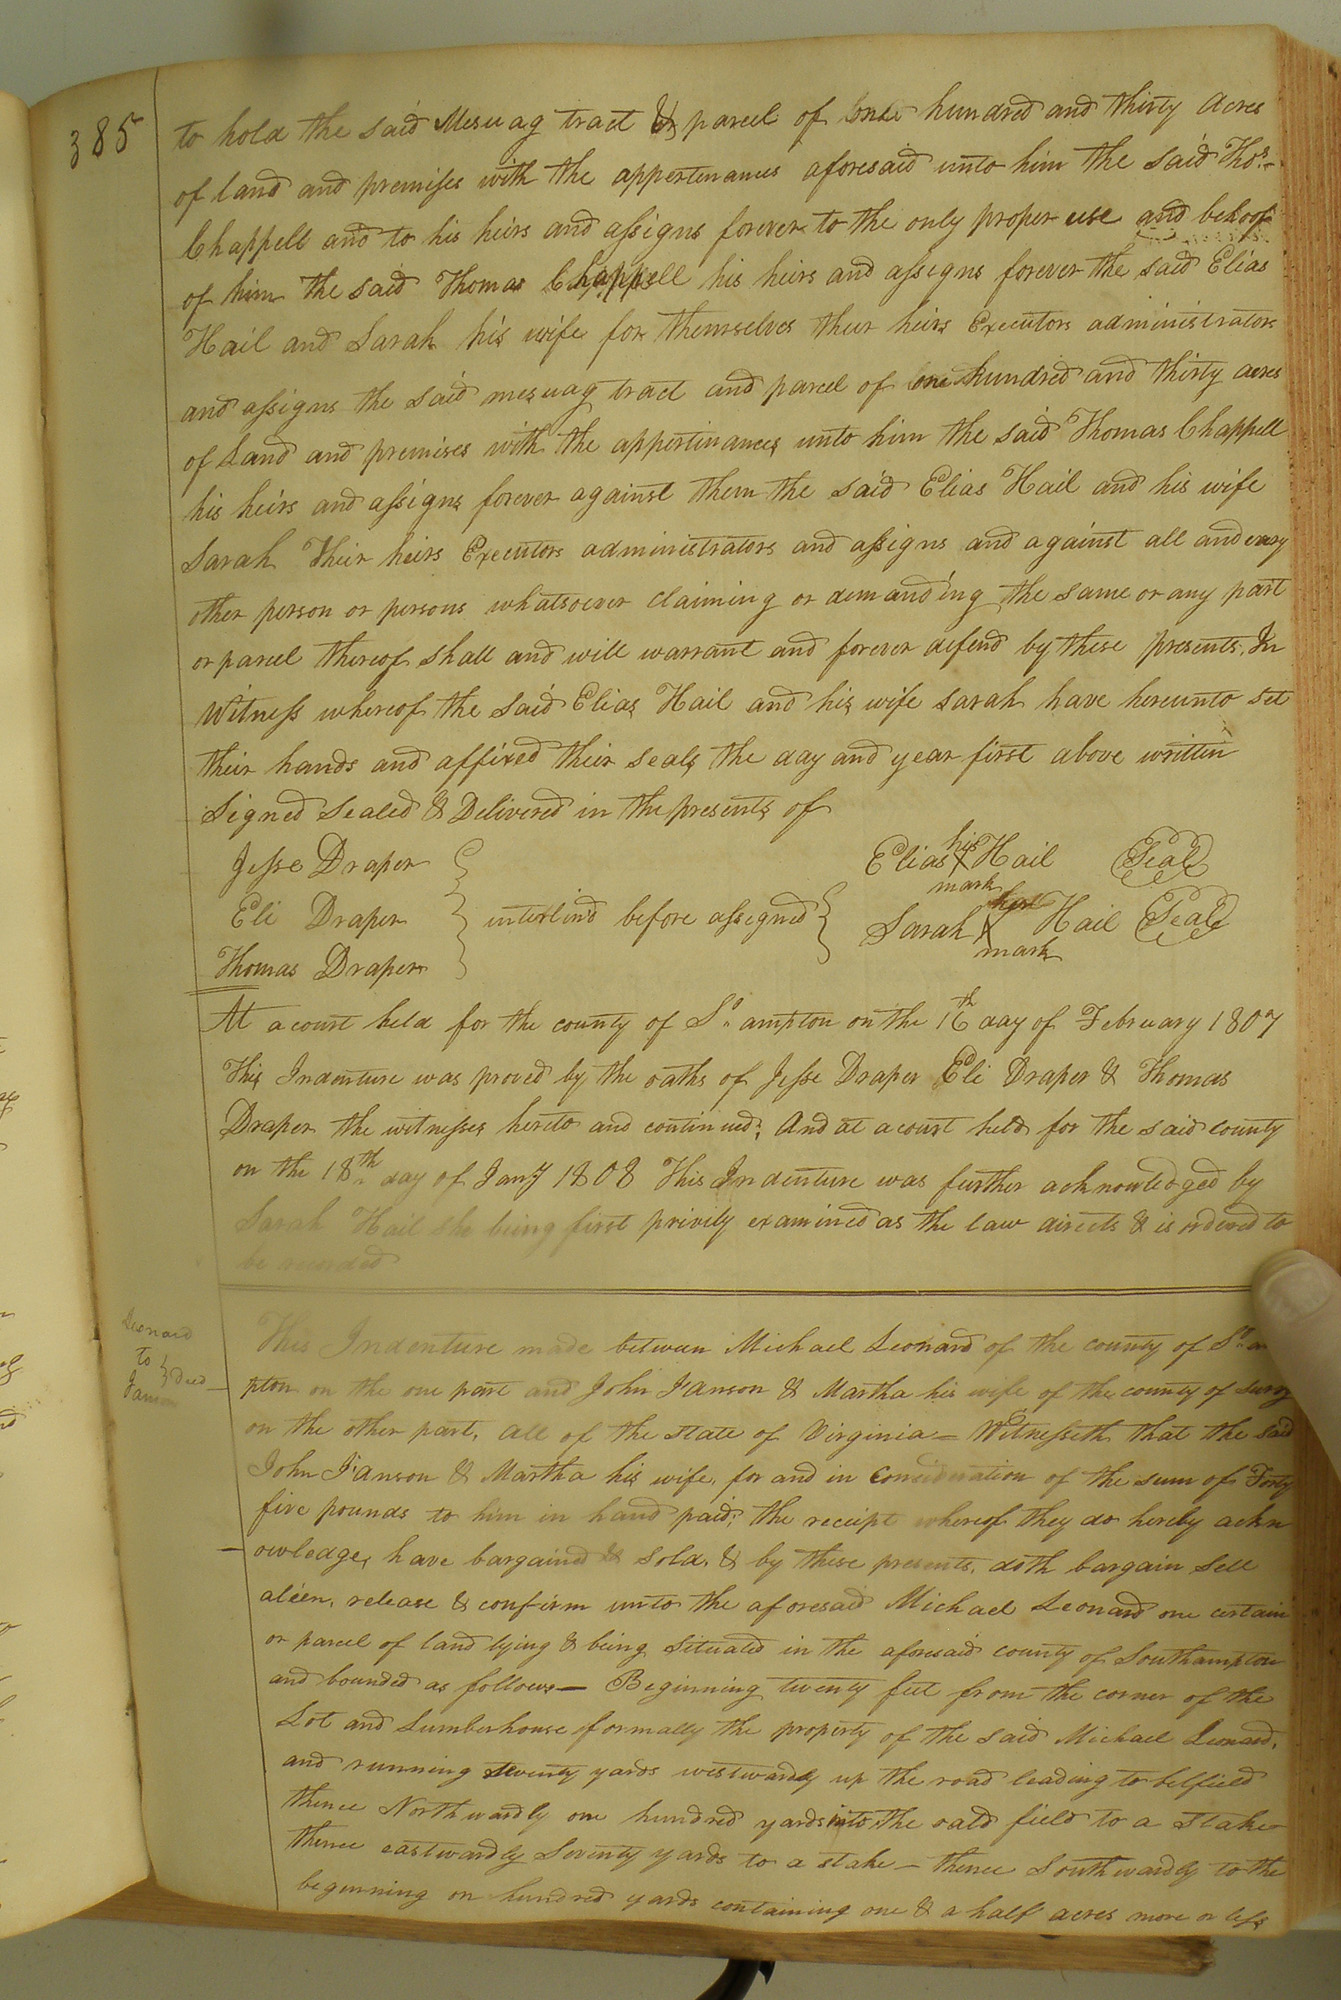 385
to hold the said Mesuag tract & parcel of one hundred and thirty Acres
of land and premises with the appertenances aforesaid unto him the said Thos.
Chappell and to his heirs and assigns forever to the only proper use and behoof
of him the said Thomas Chappell his heirs and assigns forever the said Elias
Hail and Sarah his wife for themselves their heirs Executors administrators
and assigns the said mesuag tract and parcel of one hundred and thirty acres
of Land and premises with the appertinances unto him the said Thomas Chappell
his heirs and assigns forever against them the said Elias Hail and his wife
Sarah Their heirs Executors administrators and assigns and against all and every
other person or persons whatsoever claiming or demanding the same or any part
or parcel thereof shall and will warrant and forever defend by these presents. In
Witness whereof the said Elias Hail and his wife Sarah have hereunto set
their hands and affixed their seals the day and year first above written
Signed Sealed & Delivered in the presents of
Jesse Draper
Eli Draper
Thomas Draper
interlin'd before assigned
Elias his X mark Hail Seal
Sarah her X mark Hail Seal
At a court held for the county of So. ampton on the 16th day of February 1807
This Indenture was proved by the oaths of Jesse Draper Eli Draper & Thomas
Draper the witnesses hereto and continued; And at a court held for the said county
on the 18th day of Jany 1808 This Indenture was further acknowledged by
Sarah Hail she being first privily examined as the law directs & is ordered to
be recorded
Leonard
to } Deed
Janson
This Indenture made between Michael Leonard of the county of So. am
pton on the one part and John I'anson & Martha his wife of the county of Surry
on the other part, all of the state of Virginia — Witnesseth that the said
John I'anson & Martha his wife, for and in Consideration of the sum of Forty
five pounds to him in hand paid; the receipt whereof they do hereby ackn
owledge, have bargained & sold, & by these presents, doth bargain sell
alien, release & confirm unto the aforesaid Michael Leonard one certain
or parcel of land lying & being situated in the aforesaid county of Southampton
and bounded as follows — Beginning twenty feet from the corner of the
Lot and Lumberhouse formally the property of the said Michael Leonard,
and running seventy yards westwardly up the road leading to belfield
thence Northwardly one hundred yards into the oald field to a stake
thence eastwardly Seventy yards to a stake — thence Southwardly to the
beginning on hundred yards containing one & a half acres more or less